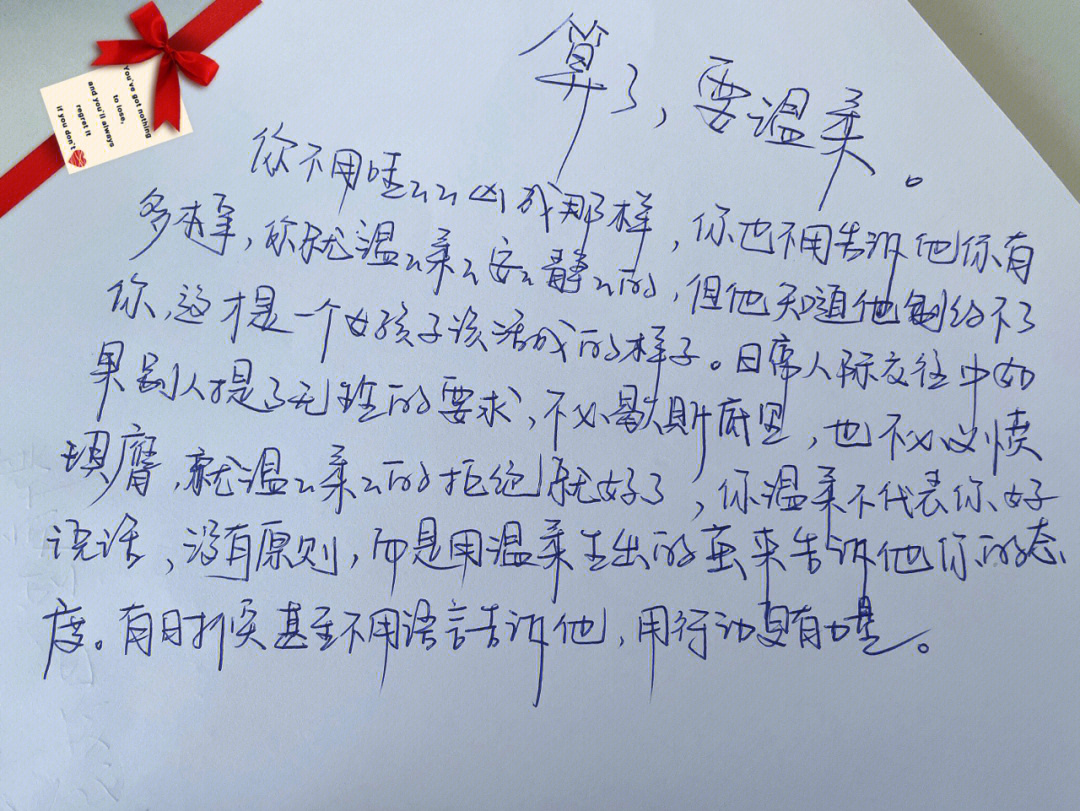 You've got nothing
to lose,
and you'll always
regret it
if you don't
算了，要温柔。
你不用哇ㄣㄣ凶成那样，你也不用告诉他你有
多棒，你就温ㄣ柔ㄣ安ㄣ静ㄣ的，但他知道他制约不了
你，这才是一个女孩子该活成的样子。日常人际交往中如
果别人提了无理的要求，不必歇斯底里，也不必义愤
填膺，就温ㄣ柔ㄣ的拒绝就好了，你温柔不代表你好
说话，没有原则，而是用温柔生出的茧来告诉他你的态
度。有时候甚至不用语言告诉他，用行动更有力量。